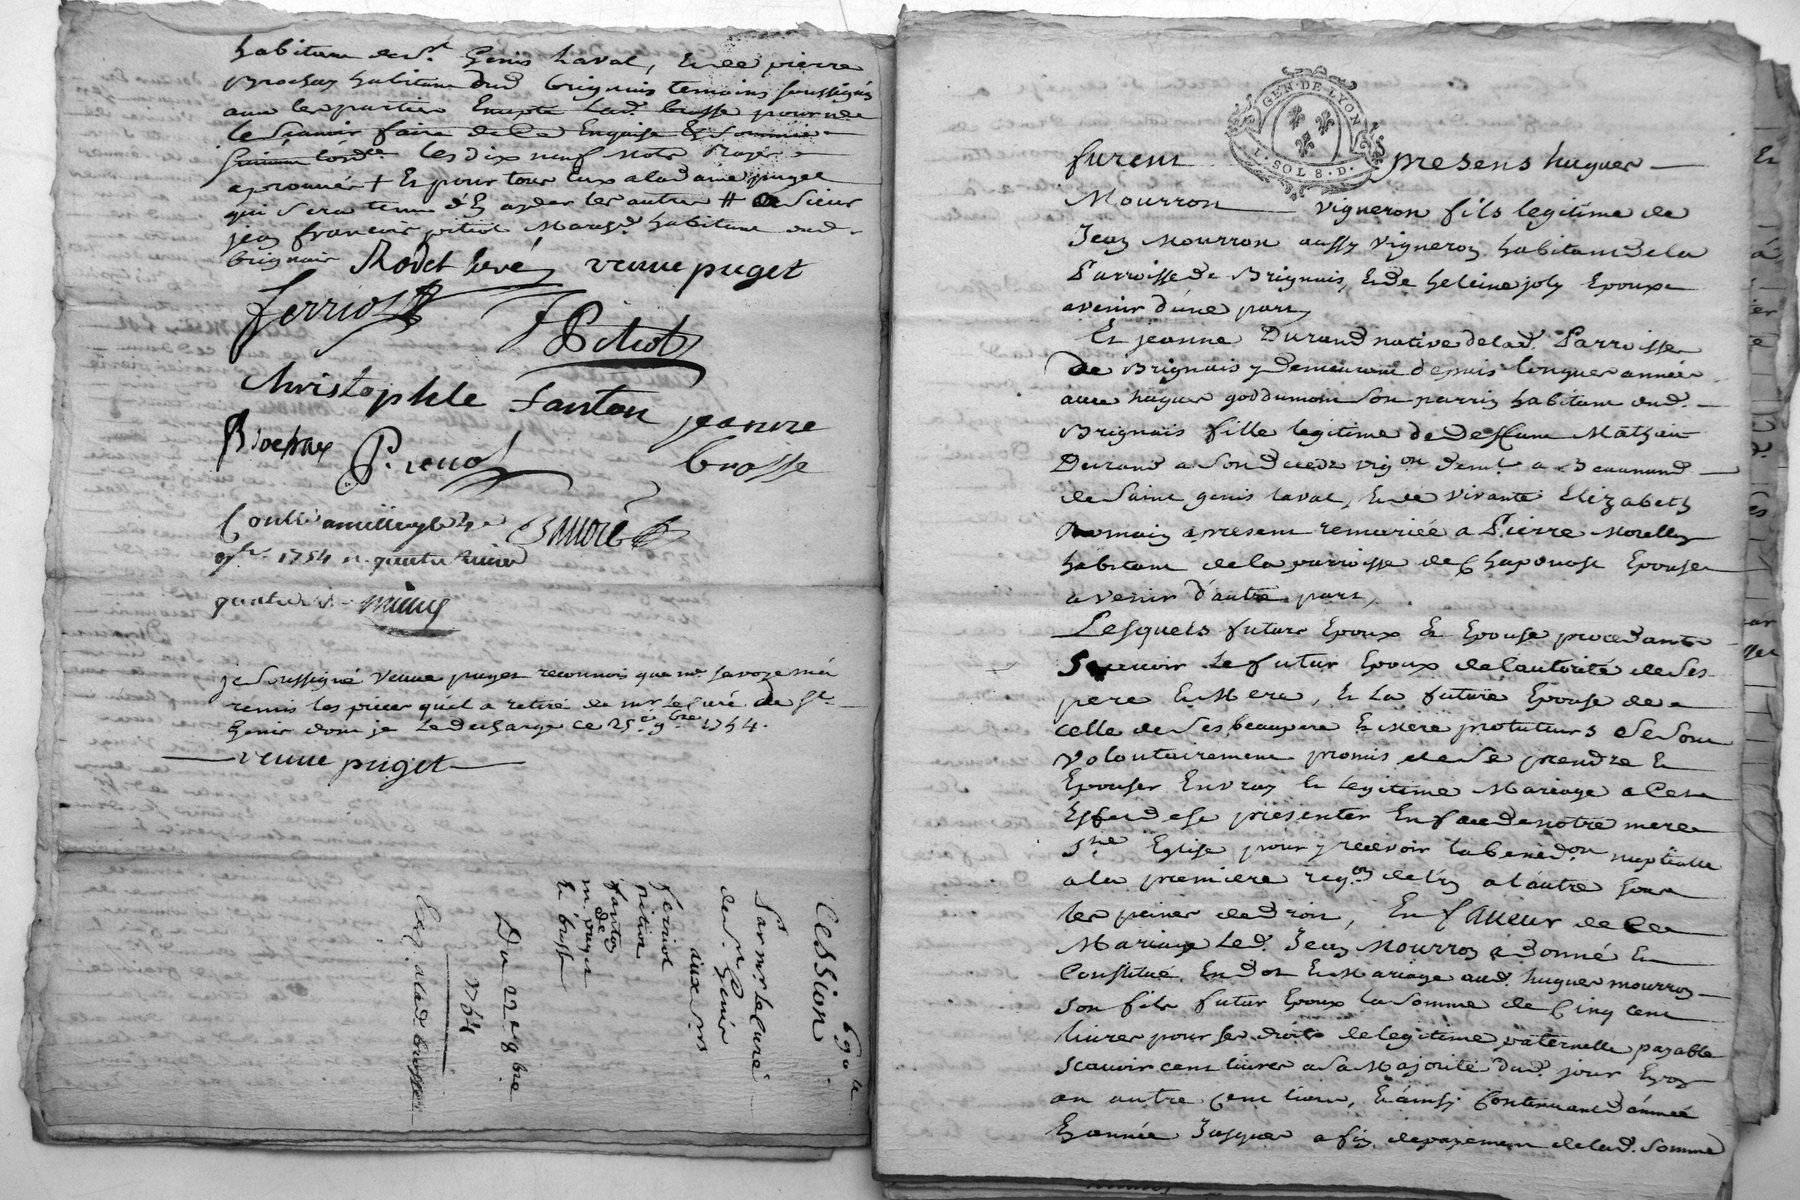 habitant de St. Genis Laval, & de pierre
Brochay habitant dud brignais temoins soussignés
avec les parties Excepté lad. brosse pour ne
le scavoir faire de ce Enquise & sommée
les dix neuf mots Rayés
aprouvés + Et pour tous Eux a la dame puget
qui sera tenue d'En ayder les autres # & Sieur
jean francois pitiot March.d habitant aud.
brignais Rodet Curé veuve puget
ferriot
Pitiot
Christophle fanton jeanne
Brochay P. renoz brosse
9bre 1754 r. quatre livres
je soussigné veuve puget reconnois que mr. savoye m'a
remis les pieces qu'il a retiré de mr le Curé de St.
Genis dont je le decharge ce 25e 9bre 1754.
veuve puget
Cession
Par mr le curé
de St Genis
aux srs
ferriot
pitiot
fanton
de
m. puget
& brosse
Du 22e 8bre
1754
Exp. a lad. brosse
GEN. DE LYON
1. SOL 8. D.
furent presens hugues
Mourron vigneron fils legitime de
Jean Mourron aussy vigneron habitant de la
Parroisse de Brignais, & de heleine joly Epoux
avenir d'une part
Et jeanne Durand native de lad. Parroisse
de Brignais y demeurant depuis longues années
avec hugues goddumont son parrin habitant aud.
Brignais fille legitime de deffunt Mathieu
Durand a son deceds vig.on dem.t a Beaunand
de Saint genis laval, & de vivante Elizabeth
Romain a present remariée a Pierre Morellon
habitant de la parroisse de Chaponost Epouse
avenir d'autre part,
Lesquels futurs Epoux & Epouse procedants
Scavoir le futur Epoux de l'autorité de ses
pere & Mere, & La future Epouse de
celle de ses beaupere & mere protuteurs se sont
volontairement promis de se prendre &
Epouser En vray & legitime Mariage a Cet
Effet de se presenter En face de notre mere
Ste Eglise pour y recevoir la bened.on nuptialle
a la premiere req.on de l'un a l'autre sous
les peines de droit, En faveur de Ce
Mariage Led. Jean Mourron a Donné &
Constitué En dot & Mariage aud. hugues mourron
son fils futur Epoux la somme de Cinq cent
livres pour ses droits de legitime paternelle payable
scavoir cent livres a sa Majorité du d. jour En
un autre cent livres, & ainsy Continuant d'année
En année Jusques a fin de payement de lad. somme